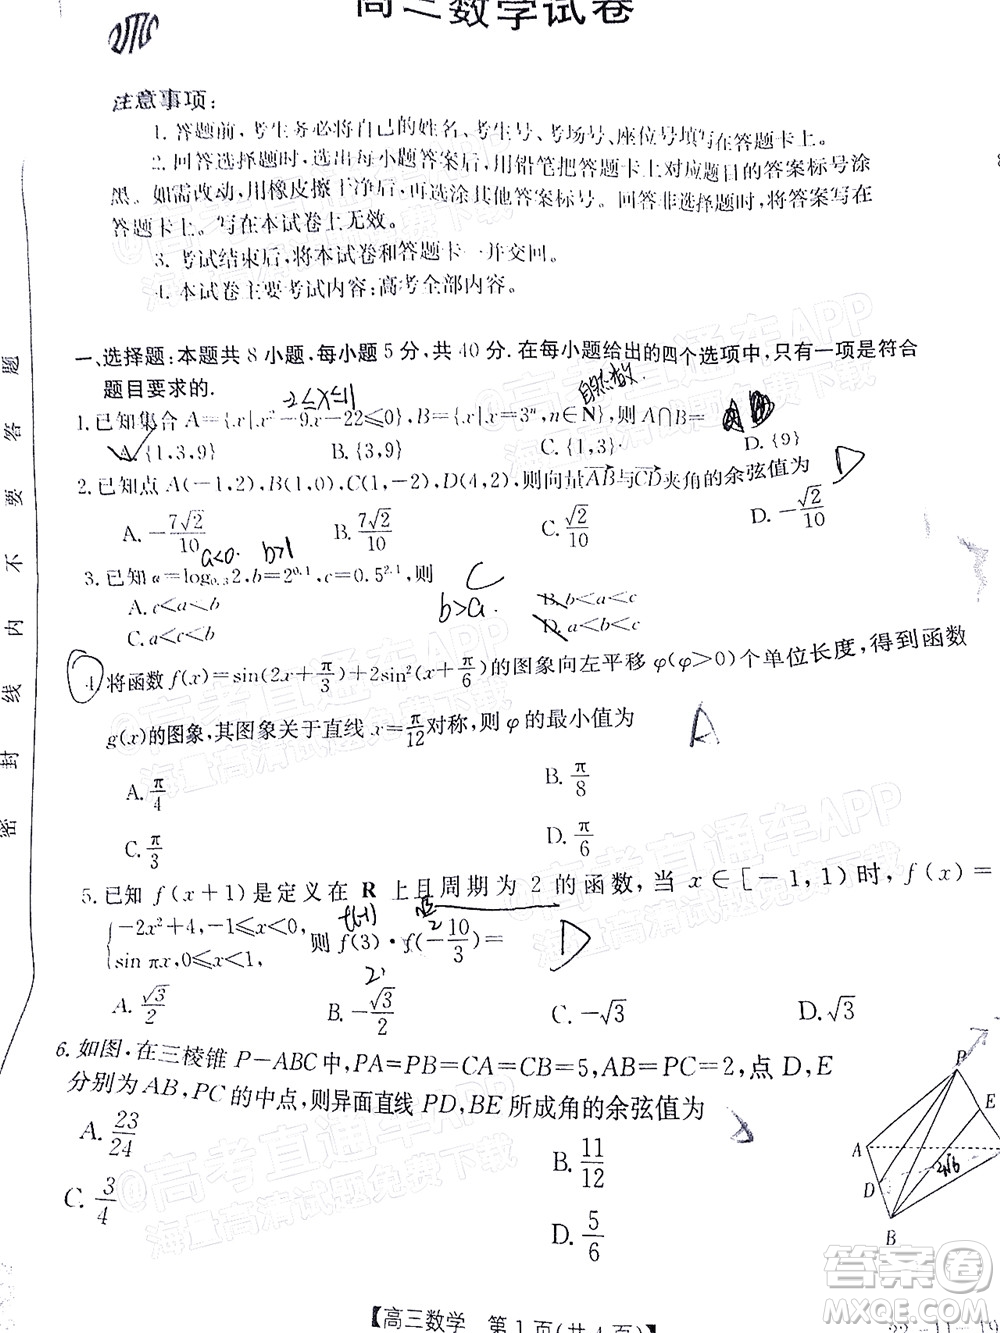 高三数学试卷
注意事项:
1. 答题前,考生务必将自己的姓名、考生号、考场号、座位号填写在答题卡上。
2. 回答选择题时,选出每小题答案后,用铅笔把答题卡上对应题目的答案标号涂
黑。如需改动,用橡皮擦干净后,再选涂其他答案标号。回答非选择题时,将答案写在
答题卡上。写在本试卷上无效。
3. 考试结束后,将本试卷和答题卡一并交回。
4. 本试卷主要考试内容:高考全部内容。
一、选择题:本题共 8 小题,每小题 5 分,共 40 分. 在每小题给出的四个选项中,只有一项是符合
题目要求的.
-2≤x≤11 自然数
1.已知集合 A={x|x²-9x-22≤0},B={x|x=3ⁿ,n∈N},则 A∩B=
A.{1,3,9} B.{3,9} C.{1,3} D.{9}
2.已知点 A(-1,2),B(1,0),C(1,-2),D(4,2),则向量AB与CD夹角的余弦值为 D
A. -7√2/10 B. 7√2/10 C. √2/10 D. -√2/10
a<0 b>1
3. 已知 a=log₀.₃2,b=2^0.1,c=0.5^2.1,则 C
A. c<a<b B. b<a<c
b>a
C. a<c<b D. a<b<c
4.将函数 f(x)=sin(2x+π/3)+2sin²(x+π/6)的图象向左平移 φ(φ>0)个单位长度,得到函数
g(x)的图象,其图象关于直线 x=π/12对称,则 φ 的最小值为 A
A. π/4 B. π/8
C. π/3 D. π/6
5. 已知 f(x+1)是定义在 R 上且周期为 2 的函数,当 x∈[-1,1)时,f(x)=
{-2x²+4,-1≤x<0,
sin πx,0≤x<1,
则 f(3)·f(-10/3)= D
f(-1) 2
A. √3/2 B. -√3/2 C. -√3 D. √3
6. 如图,在三棱锥 P-ABC中,PA=PB=CA=CB=5,AB=PC=2,点 D,E
分别为 AB,PC 的中点,则异面直线 PD,BE 所成角的余弦值为
A. 23/24 B. 11/12
C. 3/4 D. 5/6
P
E
A
D
B
2√6
【高三数学 第 1 页(共 4 页)】
密 封 线 内 不 要 答 题
@高考直通车APP
海量高清试题免费下载
答案圈
MXQE.COM